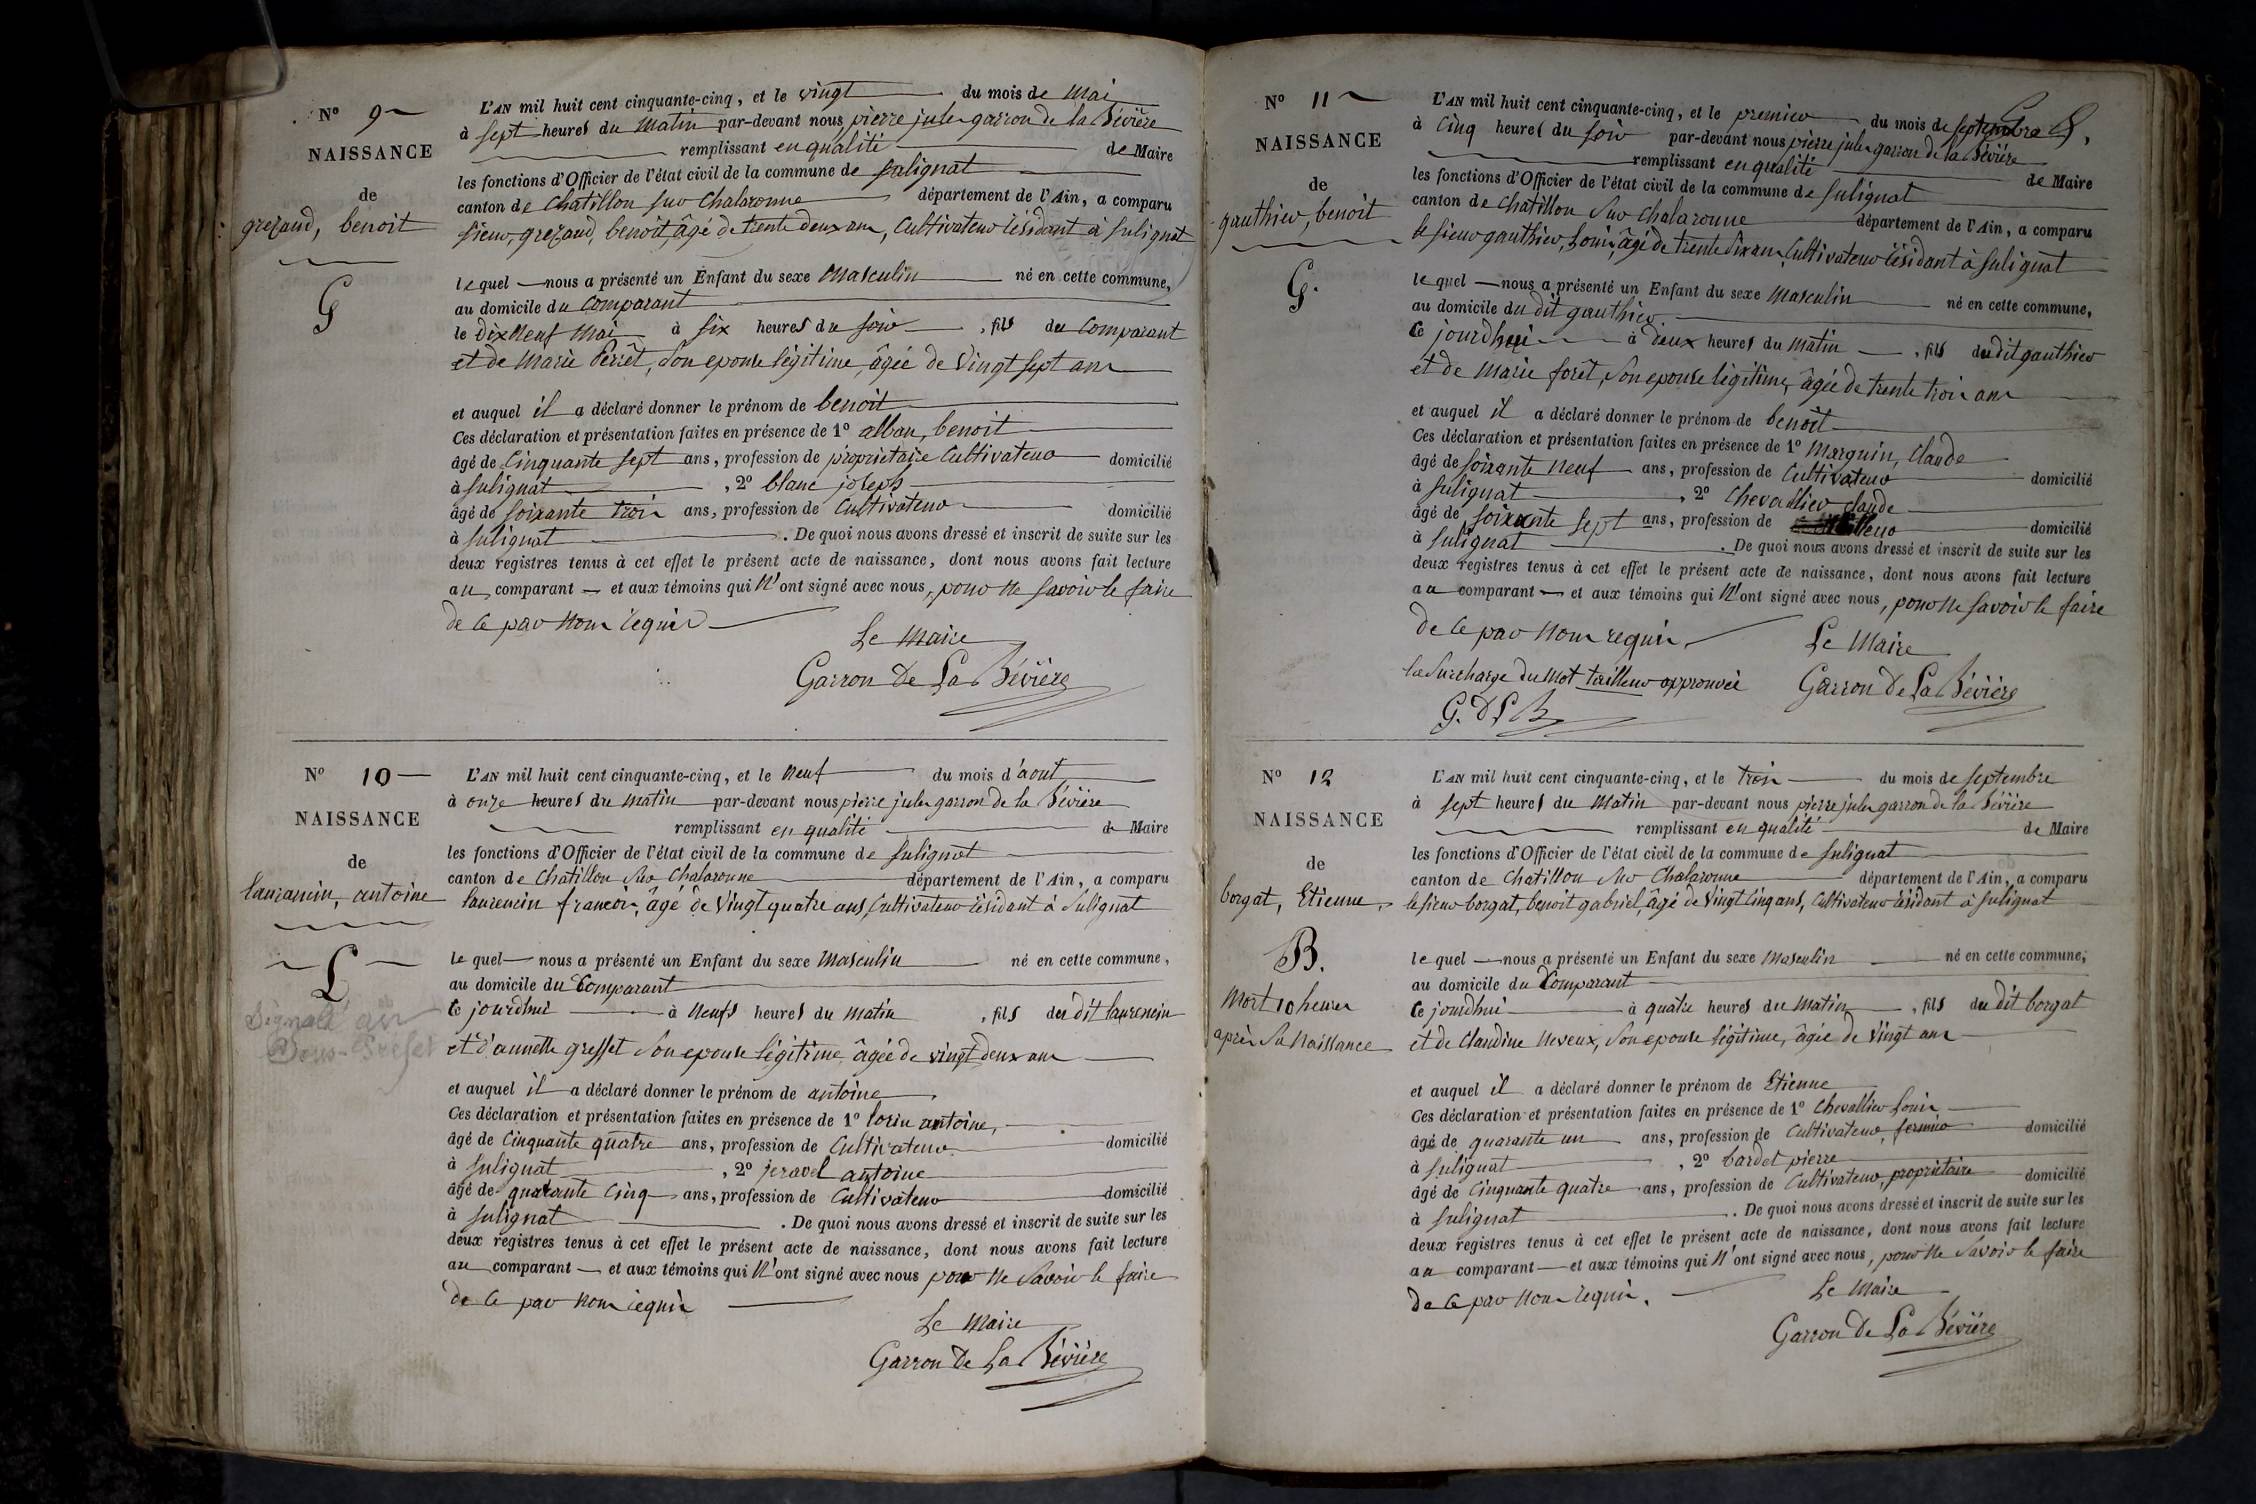 Nº 9
NAISSANCE
de
grezaud, benoit
G
L'AN mil huit cent cinquante-cinq, et le vingt du mois de Mai
à sept heures du Matin par-devant nous pierre jules garron de la Bévière
remplissant en qualité de Maire
les fonctions d'Officier de l'état civil de la commune de Sulignat
canton de Chatillon sur Chalaronne département de l'Ain, a comparu
sieur, grezaud, benoit, âgé de trente deux ans, Cultivateur résidant à Sulignat
lequel nous a présenté un Enfant du sexe Masculin né en cette commune,
au domicile du Comparant
le dix Neuf Mai à six heures du soir, fils du Comparant
et de Marie Perret, son epouse légitime, âgée de Vingt sept ans
et auquel il a déclaré donner le prénom de benoit
Ces déclaration et présentation faites en présence de 1º alban, benoit
âgé de Cinquante sept ans, profession de proprietaire Cultivateur domicilié
à Sulignat, 2º blanc joseph
âgé de soixante trois ans, profession de Cultivateur domicilié
à Sulignat. De quoi nous avons dressé et inscrit de suite sur les
deux registres tenus à cet effet le présent acte de naissance, dont nous avons fait lecture
au comparant et aux témoins qui N'ont signé avec nous, pour Ne savoir le faire
de ce par Nous requis
Le Maire
Garron De La Bévière
Nº 10
NAISSANCE
de
laurancin, antoine
L
Signalé au
Sous-Préfet
L'AN mil huit cent cinquante-cinq, et le Neuf du mois d'aout
à onze heures du matin par-devant nous pierre jules garron de la Bévière
remplissant en qualité de Maire
les fonctions d'Officier de l'état civil de la commune de Sulignat
canton de Chatillon Sur Chalaronne département de l'Ain, a comparu
laurencin françois, âgé de Vingt quatre ans, Cultivateur résidant à Sulignat
lequel nous a présenté un Enfant du sexe Masculin né en cette commune,
au domicile du Comparant
Ce jourdhui à Neufs heures du matin, fils du dit laurencin
et d'annette gresset Son epouse légitime âgée de vingt deux ans
et auquel il a déclaré donner le prénom de antoine
Ces déclaration et présentation faites en présence de 1º lorin antoine,
âgé de Cinquante quatre ans, profession de Cultivateur domicilié
à Sulignat, 2º jeravel antoine
âgé de quarante Cinq ans, profession de Cultivateur domicilié
à Sulignat. De quoi nous avons dressé et inscrit de suite sur les
deux registres tenus à cet effet le présent acte de naissance, dont nous avons fait lecture
au comparant et aux témoins qui N'ont signé avec nous pour Ne Savoir le faire
de ce par Nous requis
Le Maire
Garron De La Bévière
Nº 11
NAISSANCE
de
gauthier, benoit
G.
L'AN mil huit cent cinquante-cinq, et le premier du mois de septembre
à Cinq heures du soir par-devant nous pierre jules garron de la Bévière
remplissant en qualité de Maire
les fonctions d'Officier de l'état civil de la commune de Sulignat
canton de Chatillon Sur Chalaronne département de l'Ain, a comparu
le sieur gauthier, Louis, âgé de trente six ans, Cultivateur résidant à Sulignat
lequel nous a présenté un Enfant du sexe Masculin né en cette commune,
au domicile du dit gauthier
Ce jourdhui à deux heures du Matin, fils du dit gauthier
et de Marie foret, Son epouse légitime, âgée de trente trois ans
et auquel il a déclaré donner le prénom de benoit
Ces déclaration et présentation faites en présence de 1º Marguin, Claude
âgé de soixante Neuf ans, profession de Cultivateur domicilié
à Sulignat, 2º Chevallier Claude
âgé de soixante sept ans, profession de tailleur domicilié
à Sulignat. De quoi nous avons dressé et inscrit de suite sur les
deux registres tenus à cet effet le présent acte de naissance, dont nous avons fait lecture
au comparant et aux témoins qui N'ont signé avec nous, pour Ne savoir le faire
de ce par Nous requis
Le Maire
la Surcharge du Mot tailleur approuvée
Garron De La Bévière
G. D L B
Nº 12
NAISSANCE
de
borgat, Etienne
B.
Mort 10 heures
après Sa Naissance
L'AN mil huit cent cinquante-cinq, et le trois du mois de septembre
à sept heures du Matin par-devant nous pierre jules garron de la Bévière
remplissant en qualité de Maire
les fonctions d'Officier de l'état civil de la commune de Sulignat
canton de Chatillon Sur Chalaronne département de l'Ain, a comparu
le sieur borgat, benoit gabriel, âgé de Vingt Cinq ans, Cultivateur résidant à Sulignat
lequel nous a présenté un Enfant du sexe Masculin né en cette commune,
au domicile du Comparant
Ce jourdhui à quatre heures du Matin, fils du dit borgat
et de Claudine Neveux, Son epouse légitime, âgée de Vingt ans
et auquel il a déclaré donner le prénom de Etienne
Ces déclaration et présentation faites en présence de 1º Chevallier Louis
âgé de quarante un ans, profession de Cultivateur, fermier domicilié
à Sulignat, 2º bardet pierre
âgé de Cinquante quatre ans, profession de Cultivateur, propriétaire domicilié
à Sulignat. De quoi nous avons dressé et inscrit de suite sur les
deux registres tenus à cet effet le présent acte de naissance, dont nous avons fait lecture
au comparant et aux témoins qui N'ont signé avec nous, pour Ne Savoir le faire
de ce par Nous requis.
Le Maire
Garron De La Bévière